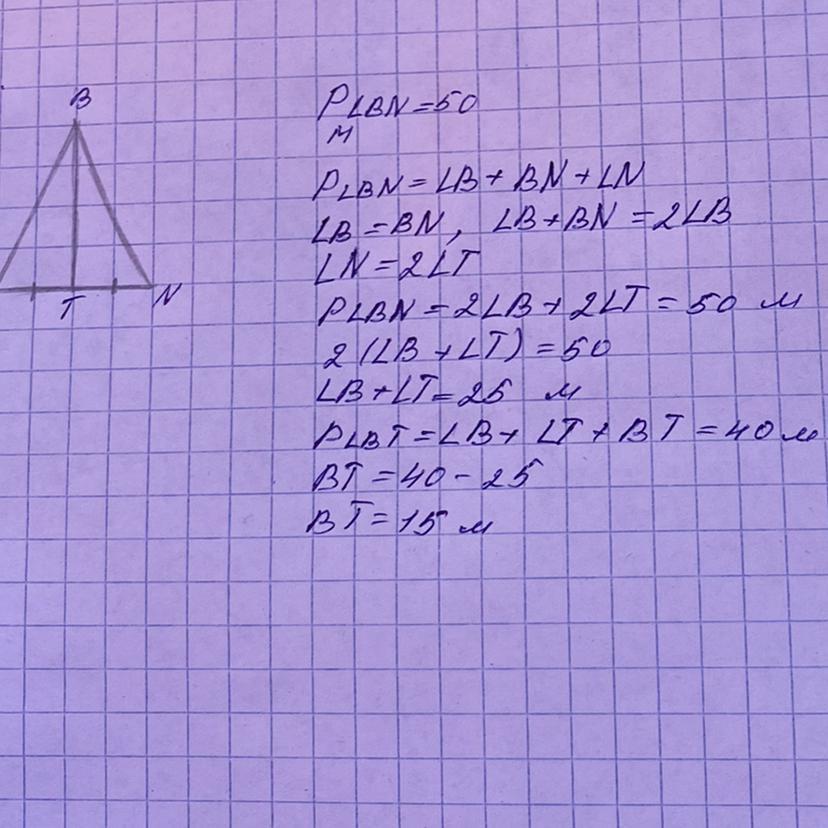 B
T
N
PLBN = 50
м
PLBN = LB + BN + LN
LB = BN, LB + BN = 2LB
LN = 2LT
PLBN = 2LB + 2LT = 50 м
2(LB + LT) = 50
LB + LT = 25 м
PLBT = LB + LT + BT = 40 м
BT = 40 - 25
BT = 15 м